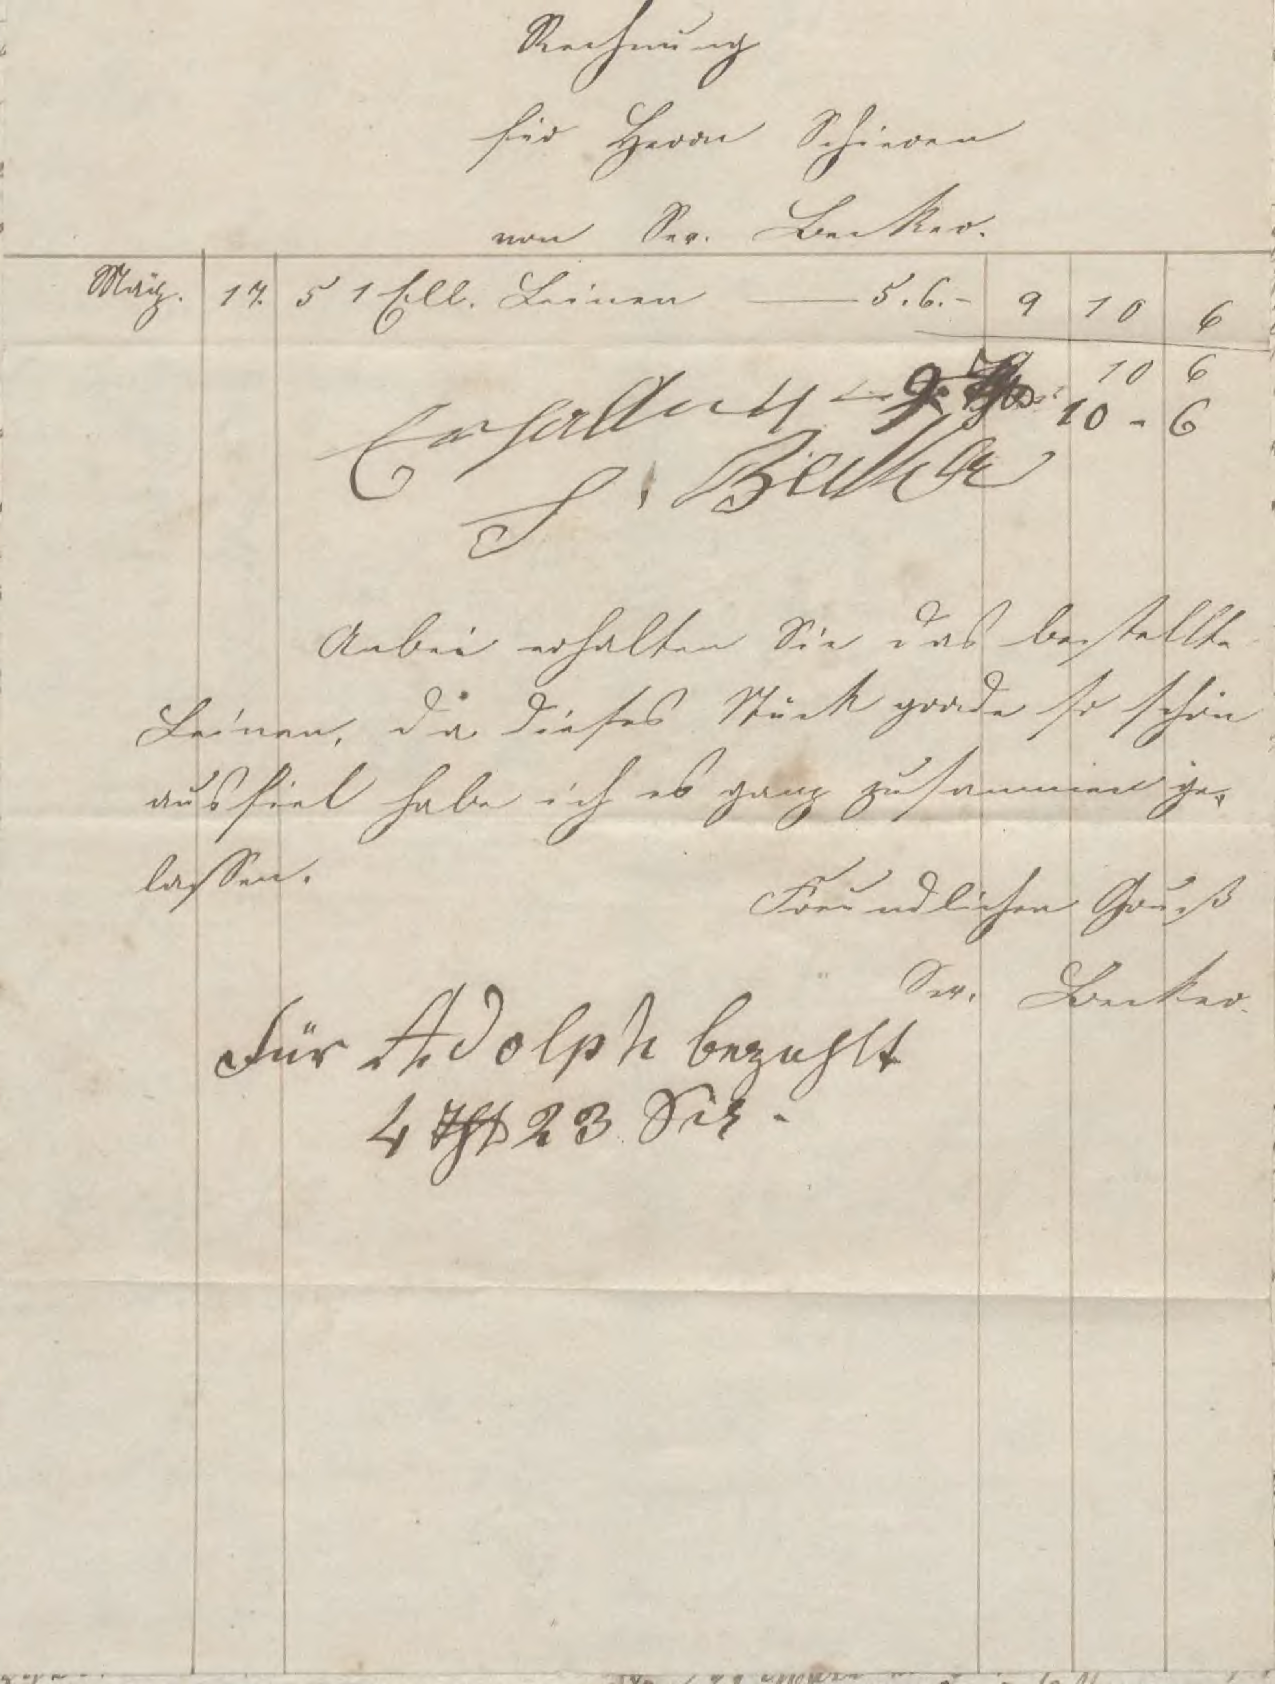 Rechnung
für Herrn Schieren
von Sev. Becker.
März. 17. 51 Ell. Leinen — 5.6.- 9 10 6
10 6
Erhalten 9 10 - 6
S. Becker
Anbei erhalten Sie das bestellte
Leinen, da dieses Stück grade so schön
ausfiel habe ich es ganz zusammen ge,
lassen.
Freundlichen Gruß
Sev. Becker.
Für Adolph bezahlt
4 Thl 23 Sgr -